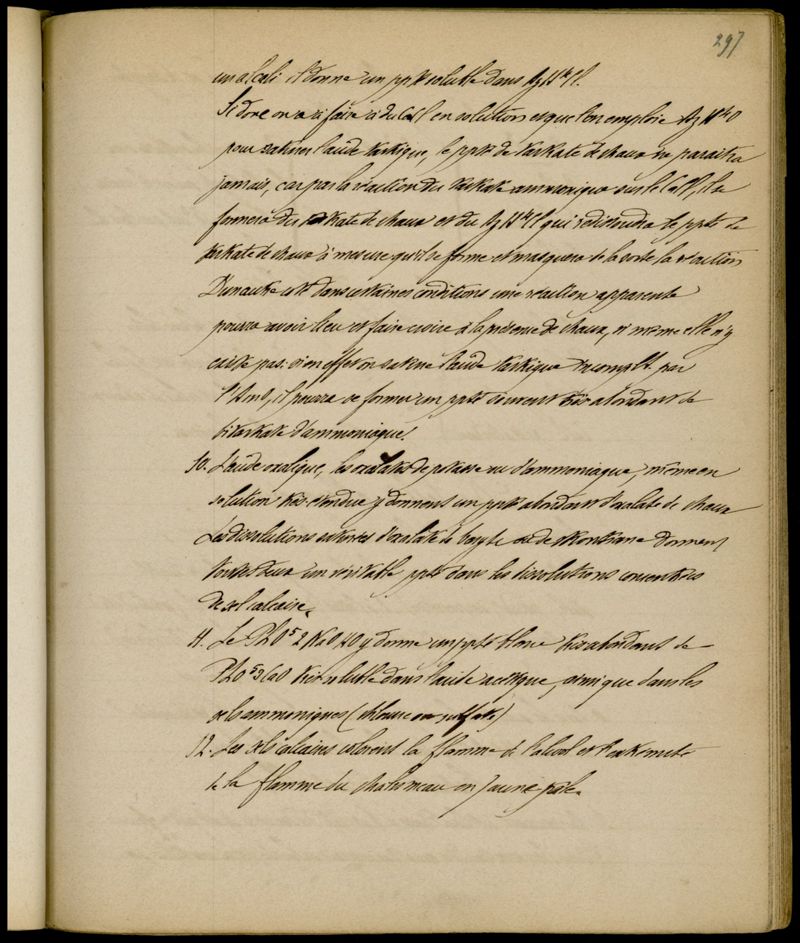 297
un alcali il donne un ppté soluble dans AzH4Cl.
Si donc on a affaire à du CaCl en solution et que l'on emploie AzH4O
pour saturer l'acide tartrique, le ppté de tartrate de chaux ne paraitra
jamais, car par la réaction du tartrate ammonique sur le CaCl, il se
formera du tartrate de chaux et du AzH4Cl qui redissoudra le ppté de
tartrate de chaux à mesure qu'il se forme et masquera de la sorte la réaction
D'un autre côté dans certaines conditions une réaction apparente
pourra avoir lieu et faire croire à la présence de chaux, si même elle n'y
existe pas. si en effet on sature l'acide tartrique incomplt. par
il pourra se former un ppté souvent très abondant de
bitartrate d'ammoniaque.
10. L'acide oxalique, les oxalates de potasse ou d'ammoniaque, même en
solution très étendue y donnent un ppté abondant d'oxalate de chaux
Les dissolutions d'oxalate de baryte et de strontiane donnent
toutes deux un véritable ppté dans les dissolutions concentrées
de sel calcaire.
11. Le PhO5 2NaO HO y donne un ppté blanc très abondant de
PhO5 3CaO très soluble dans l'acide acétique, ainsi que dans les
sels ammoniques (chlorure ou sulfate)
12. Les sels calcaires colorent la flamme de l'alcool et l'extrémité
de la flamme du chalumeau en jaune pâle.